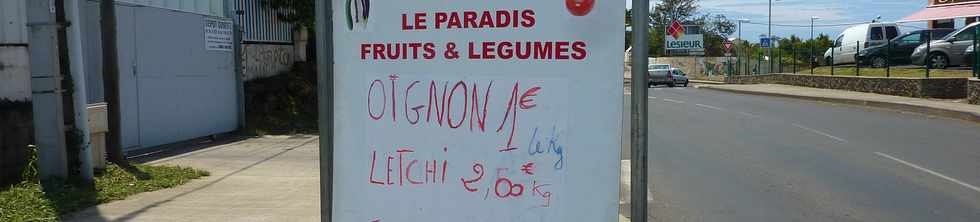 LE PARADIS
FRUITS & LEGUMES
OÏGNON 1€
le Kg
LETCHI 2,50€ Kg
LESIEUR